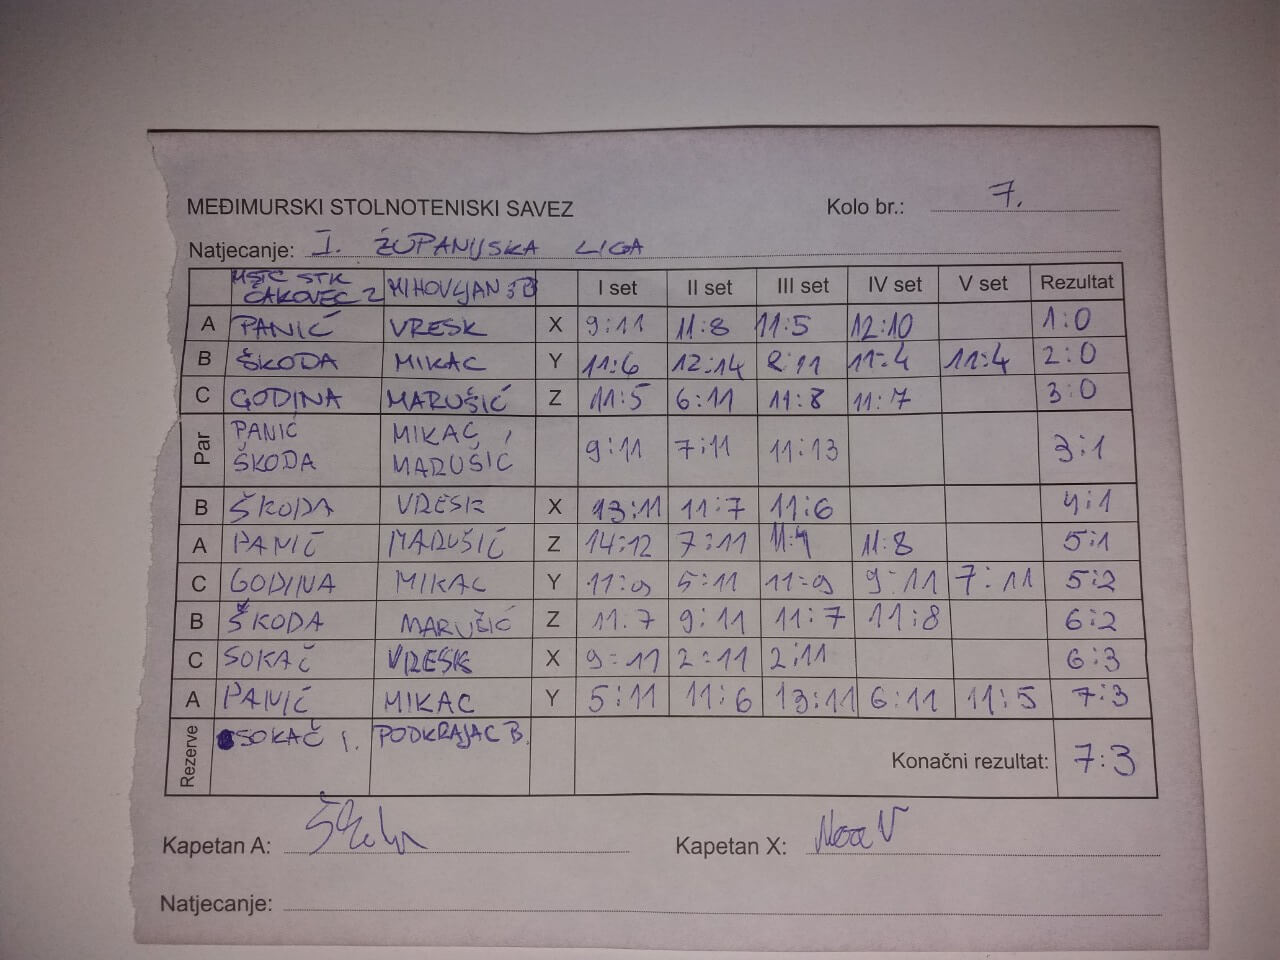 MEĐIMURSKI STOLNOTENISKI SAVEZ Kolo br.: 7.
Natjecanje: I. ŽUPANIJSKA LIGA
MSTC STK ČAKOVEC 2 MIHOVLJAN I set II set III set IV set V set Rezultat
A PANIĆ VRESK X 9:11 11:8 11:5 12:10 1:0
B ŠKODA MIKAC Y 11:6 12:14 8:11 11:4 11:4 2:0
C GODINA MARUŠIĆ Z 11:5 6:11 11:8 11:7 3:0
Par PANIĆ ŠKODA MIKAC, MARUŠIĆ 9:11 7:11 11:13 3:1
B ŠKODA VRESK X 13:11 11:7 11:6 4:1
A PANIĆ MARUŠIĆ Z 14:12 7:11 11:4 11:8 5:1
C GODINA MIKAC Y 11:9 5:11 11:9 9:11 7:11 5:2
B ŠKODA MARUŽIĆ Z 11:7 9:11 11:7 11:8 6:2
C SOKAČ VRESK X 9:11 2:11 2:11 6:3
A PANIĆ MIKAC Y 5:11 11:6 13:11 6:11 11:5 7:3
Rezerve SOKAČ I. PODKRAJAC B. Konačni rezultat: 7:3
Kapetan A: Kapetan X: Noa V
Natjecanje: